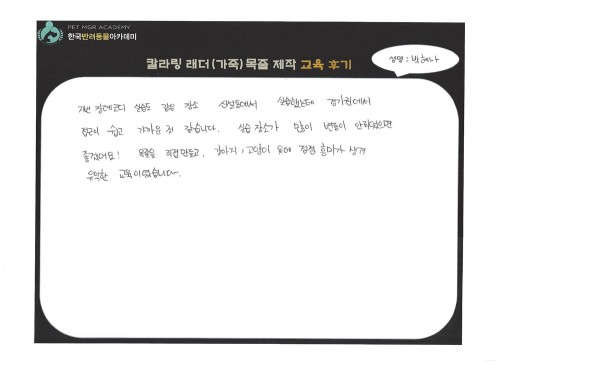 PET MGR ACADEMY
한국반려동물아카데미
칼라링 래더(가죽)목줄 제작 교육 후기
성명 : 박혜나
저번 실습도 같은 장소 신설동에서 실습했는데 경기권에서
접근이 쉽고 가까운 것 같습니다. 실습 장소가 변동이 안되었으면
좋겠어요! 목줄을 직접 만들고, 강아지, 고양이 옷에 점점 흥미가 생겨
유익한 교육이었습니다.